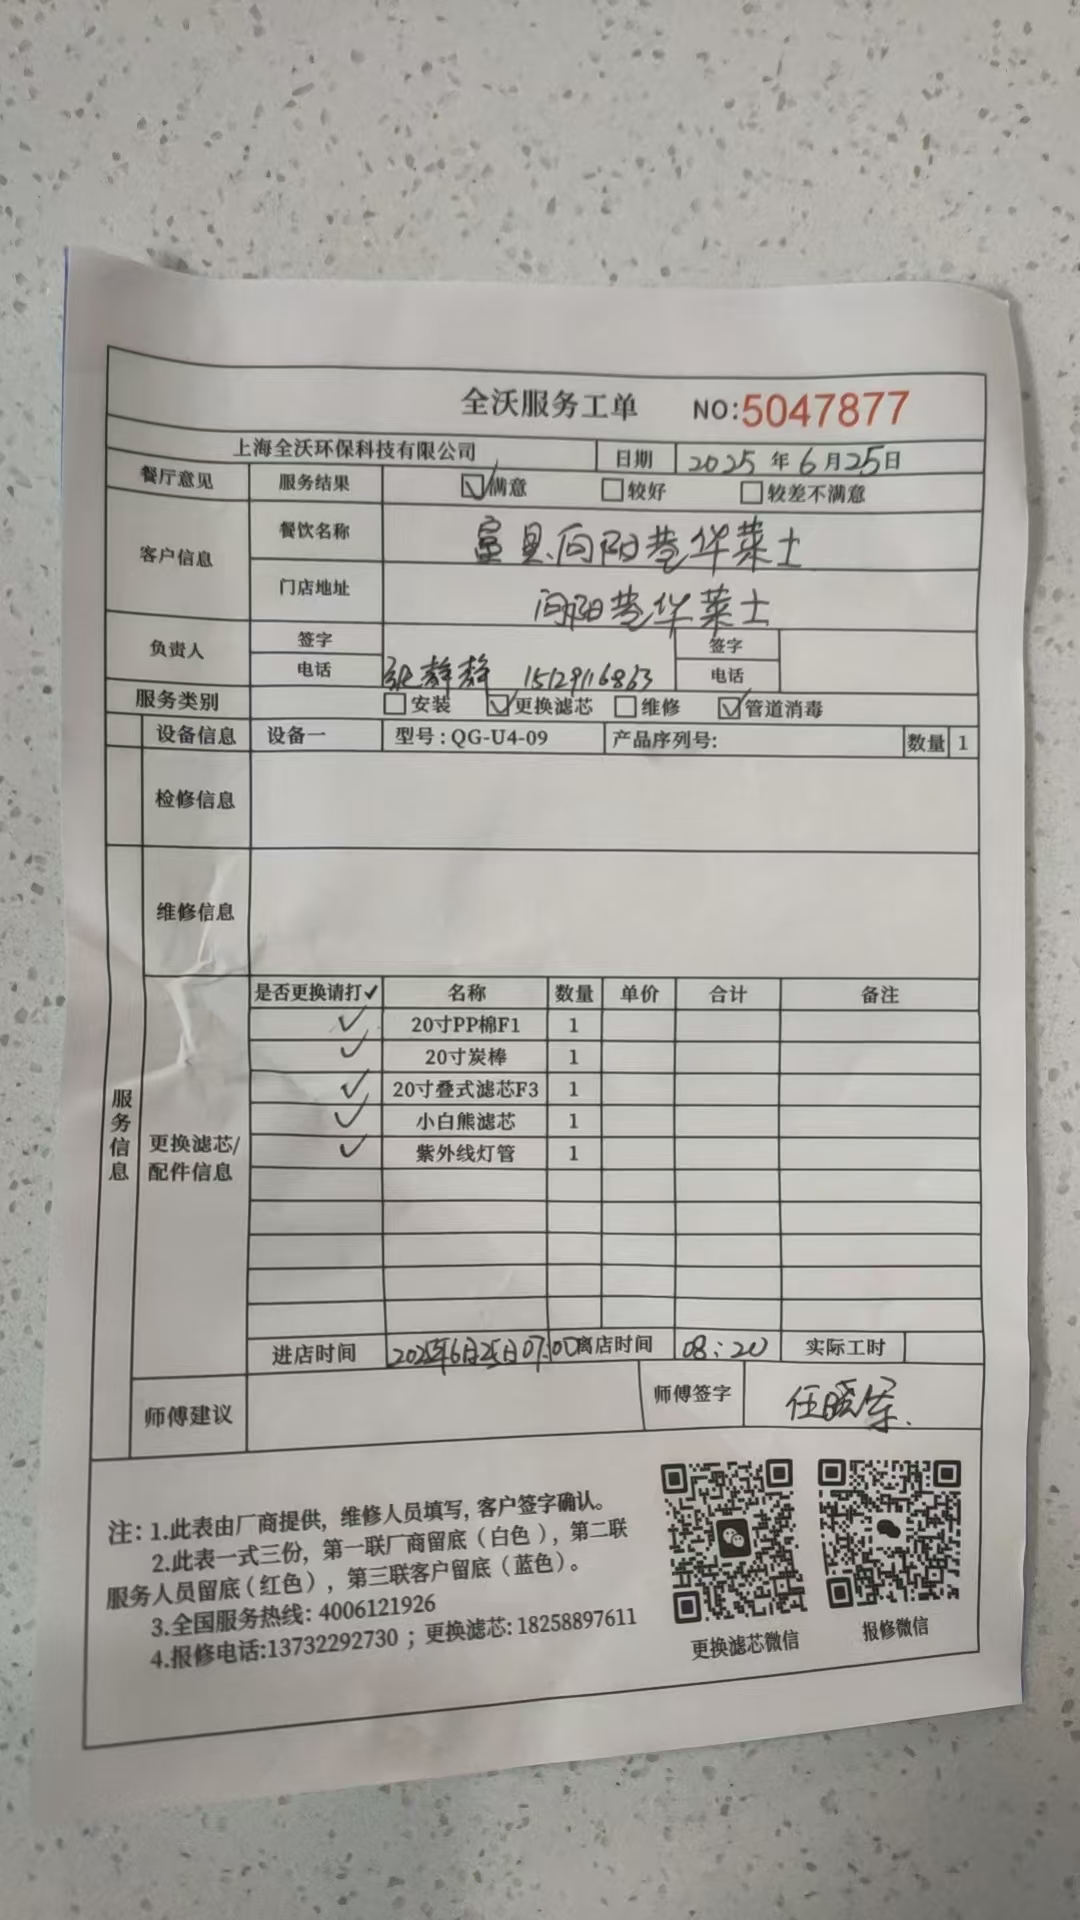 全沃服务工单 NO:5047877
上海全沃环保科技有限公司 日期 2025年6月25日
餐厅意见 服务结果 ☑满意 □较好 □较差不满意
客户信息 餐饮名称 富县向阳巷华莱士
门店地址 向阳巷华莱士
负责人 签字 签字
电话 张静静 15129116863 电话
服务类别 □安装 ☑更换滤芯 □维修 ☑管道消毒
设备信息 设备一 型号：QG-U4-09 产品序列号： 数量 1
检修信息
维修信息
服务信息
更换滤芯/配件信息
是否更换请打✓ 名称 数量 单价 合计 备注
✓ 20寸PP棉F1 1
✓ 20寸炭棒 1
✓ 20寸叠式滤芯F3 1
✓ 小白熊滤芯 1
✓ 紫外线灯管 1
进店时间 2025年6月25日07:00 离店时间 08:20 实际工时
师傅建议 师傅签字 任晓军
注：1.此表由厂商提供，维修人员填写，客户签字确认。
2.此表一式三份，第一联厂商留底（白色），第二联
服务人员留底（红色），第三联客户留底（蓝色）。
3.全国服务热线：4006121926
4.报修电话:13732292730；更换滤芯:18258897611
更换滤芯微信 报修微信